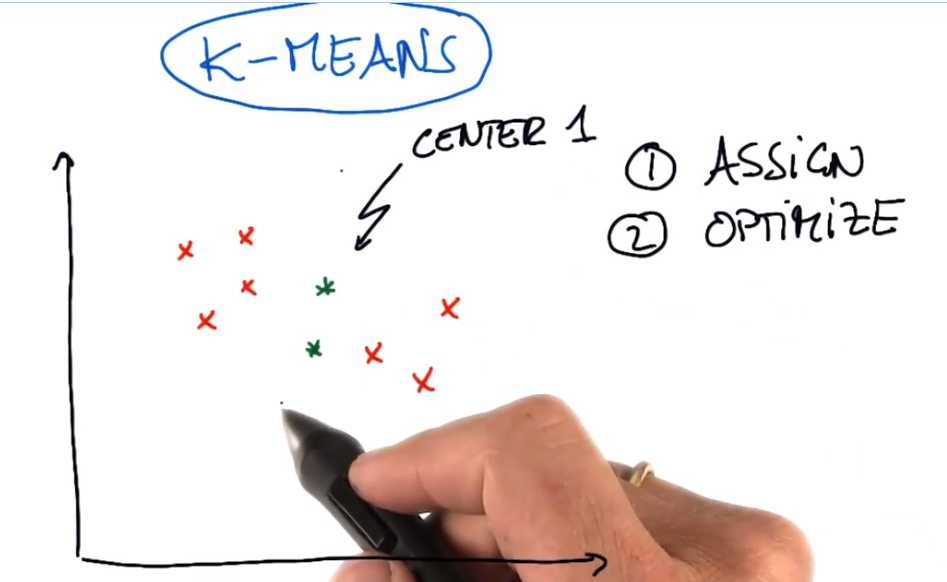 K-MEANS
CENTER 1
① ASSIGN
② OPTIMIZE